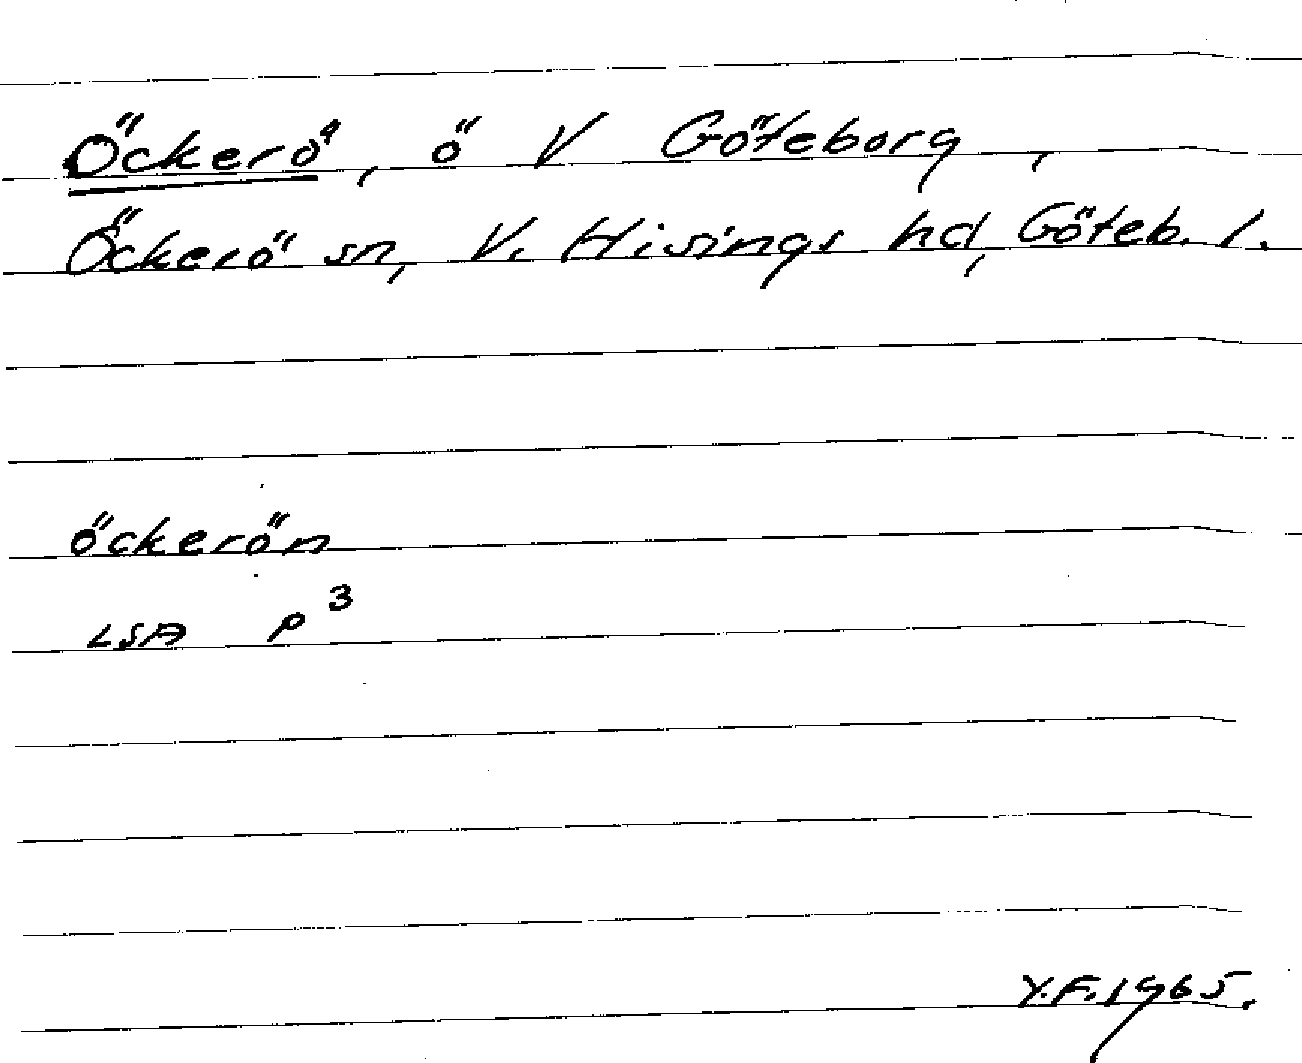 Öckerö, ö V Göteborg,
Öckerö sn, V. Hisings hd, Göteb. l.
öckerön
LSA P 3
Y.F. 1965.